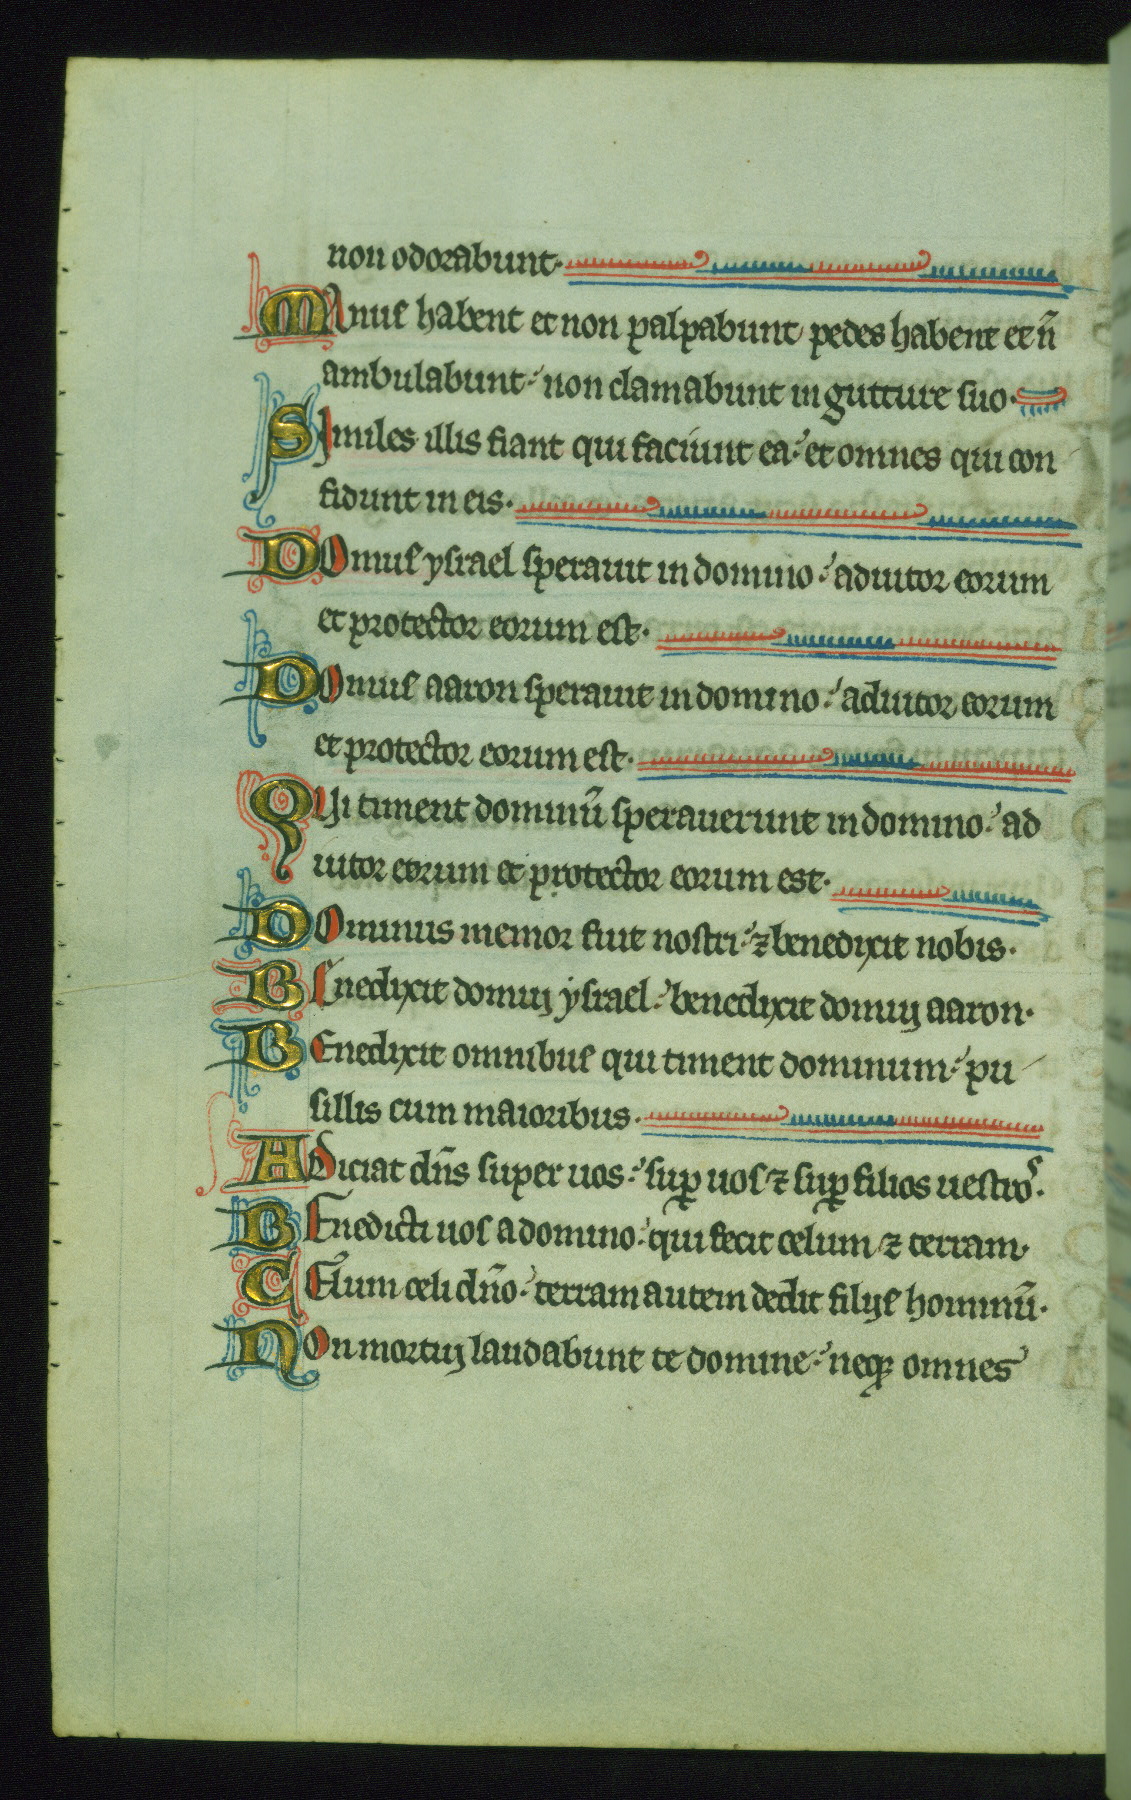 non odorabunt.
MAnus habent et non palpabunt pedes habent et ñ
ambulabunt: non clamabunt in gutture suo.
SImiles illis fiant qui faciunt ea: et omnes qui con
fidunt in eis.
DOmus ysrael sperauit in domino: adiutor eorum
et protector eorum est.
DOmus aaron sperauit in domino: adiutor eorum
et protector eorum est.
QUi timent dominū sperauerunt in domino: ad
iutor eorum et protector eorum est.
DOminus memor fuit nostri: ⁊ benedixit nobis.
BEnedixit domuj ysrael: benedixit domuj aaron.
BEnedixit omnibus qui timent dominum: pu
sillis cum maioribus.
ADiciat dñs super uos: suꝑ uos ⁊ suꝑ filios uestros.
BEnedicti uos a domino: qui fecit celum ⁊ terram.
CElum celi dño: terram autem dedit filijs hominū.
NOn mortuj laudabunt te domine: neqꝫ omnes